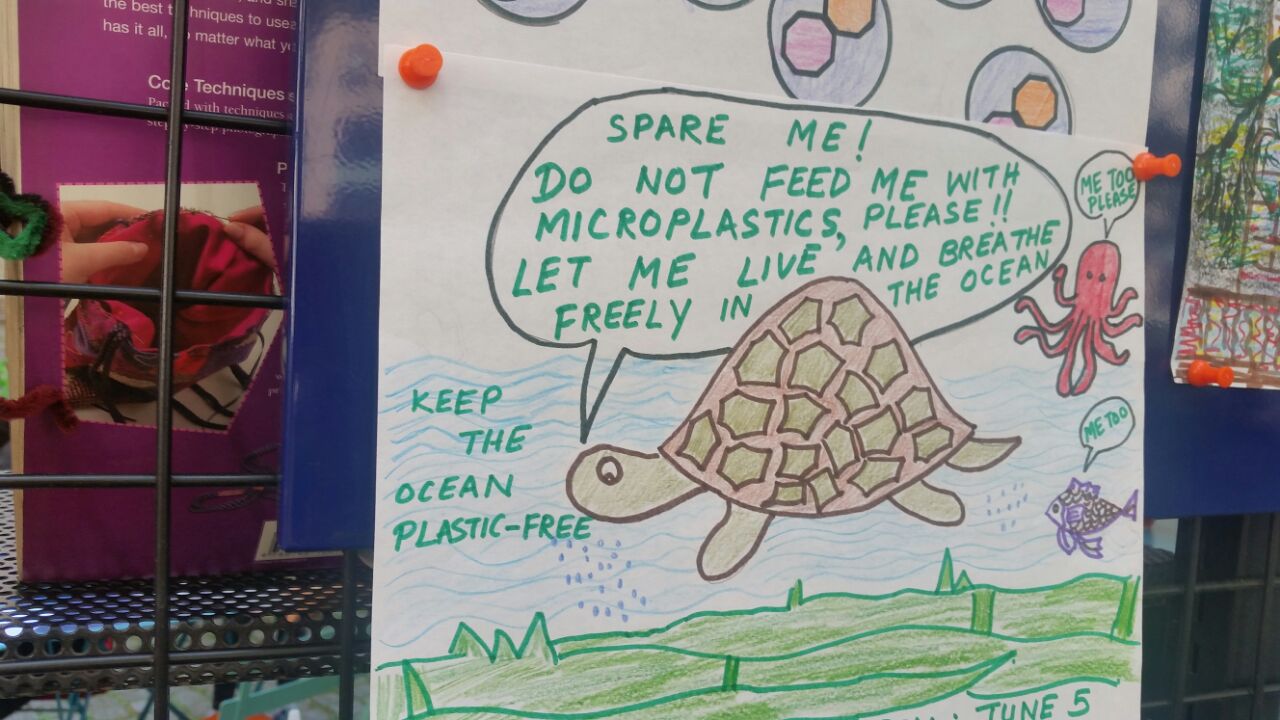 the best techniques to use
has it all, no matter what
Core Techniques
Packed with techniques
SPARE ME!
DO NOT FEED ME WITH
MICROPLASTICS, PLEASE!!
LET ME LIVE AND BREATHE
FREELY IN THE OCEAN
ME TOO
PLEASE
ME TOO
KEEP
THE
OCEAN
PLASTIC-FREE
JUNE 5